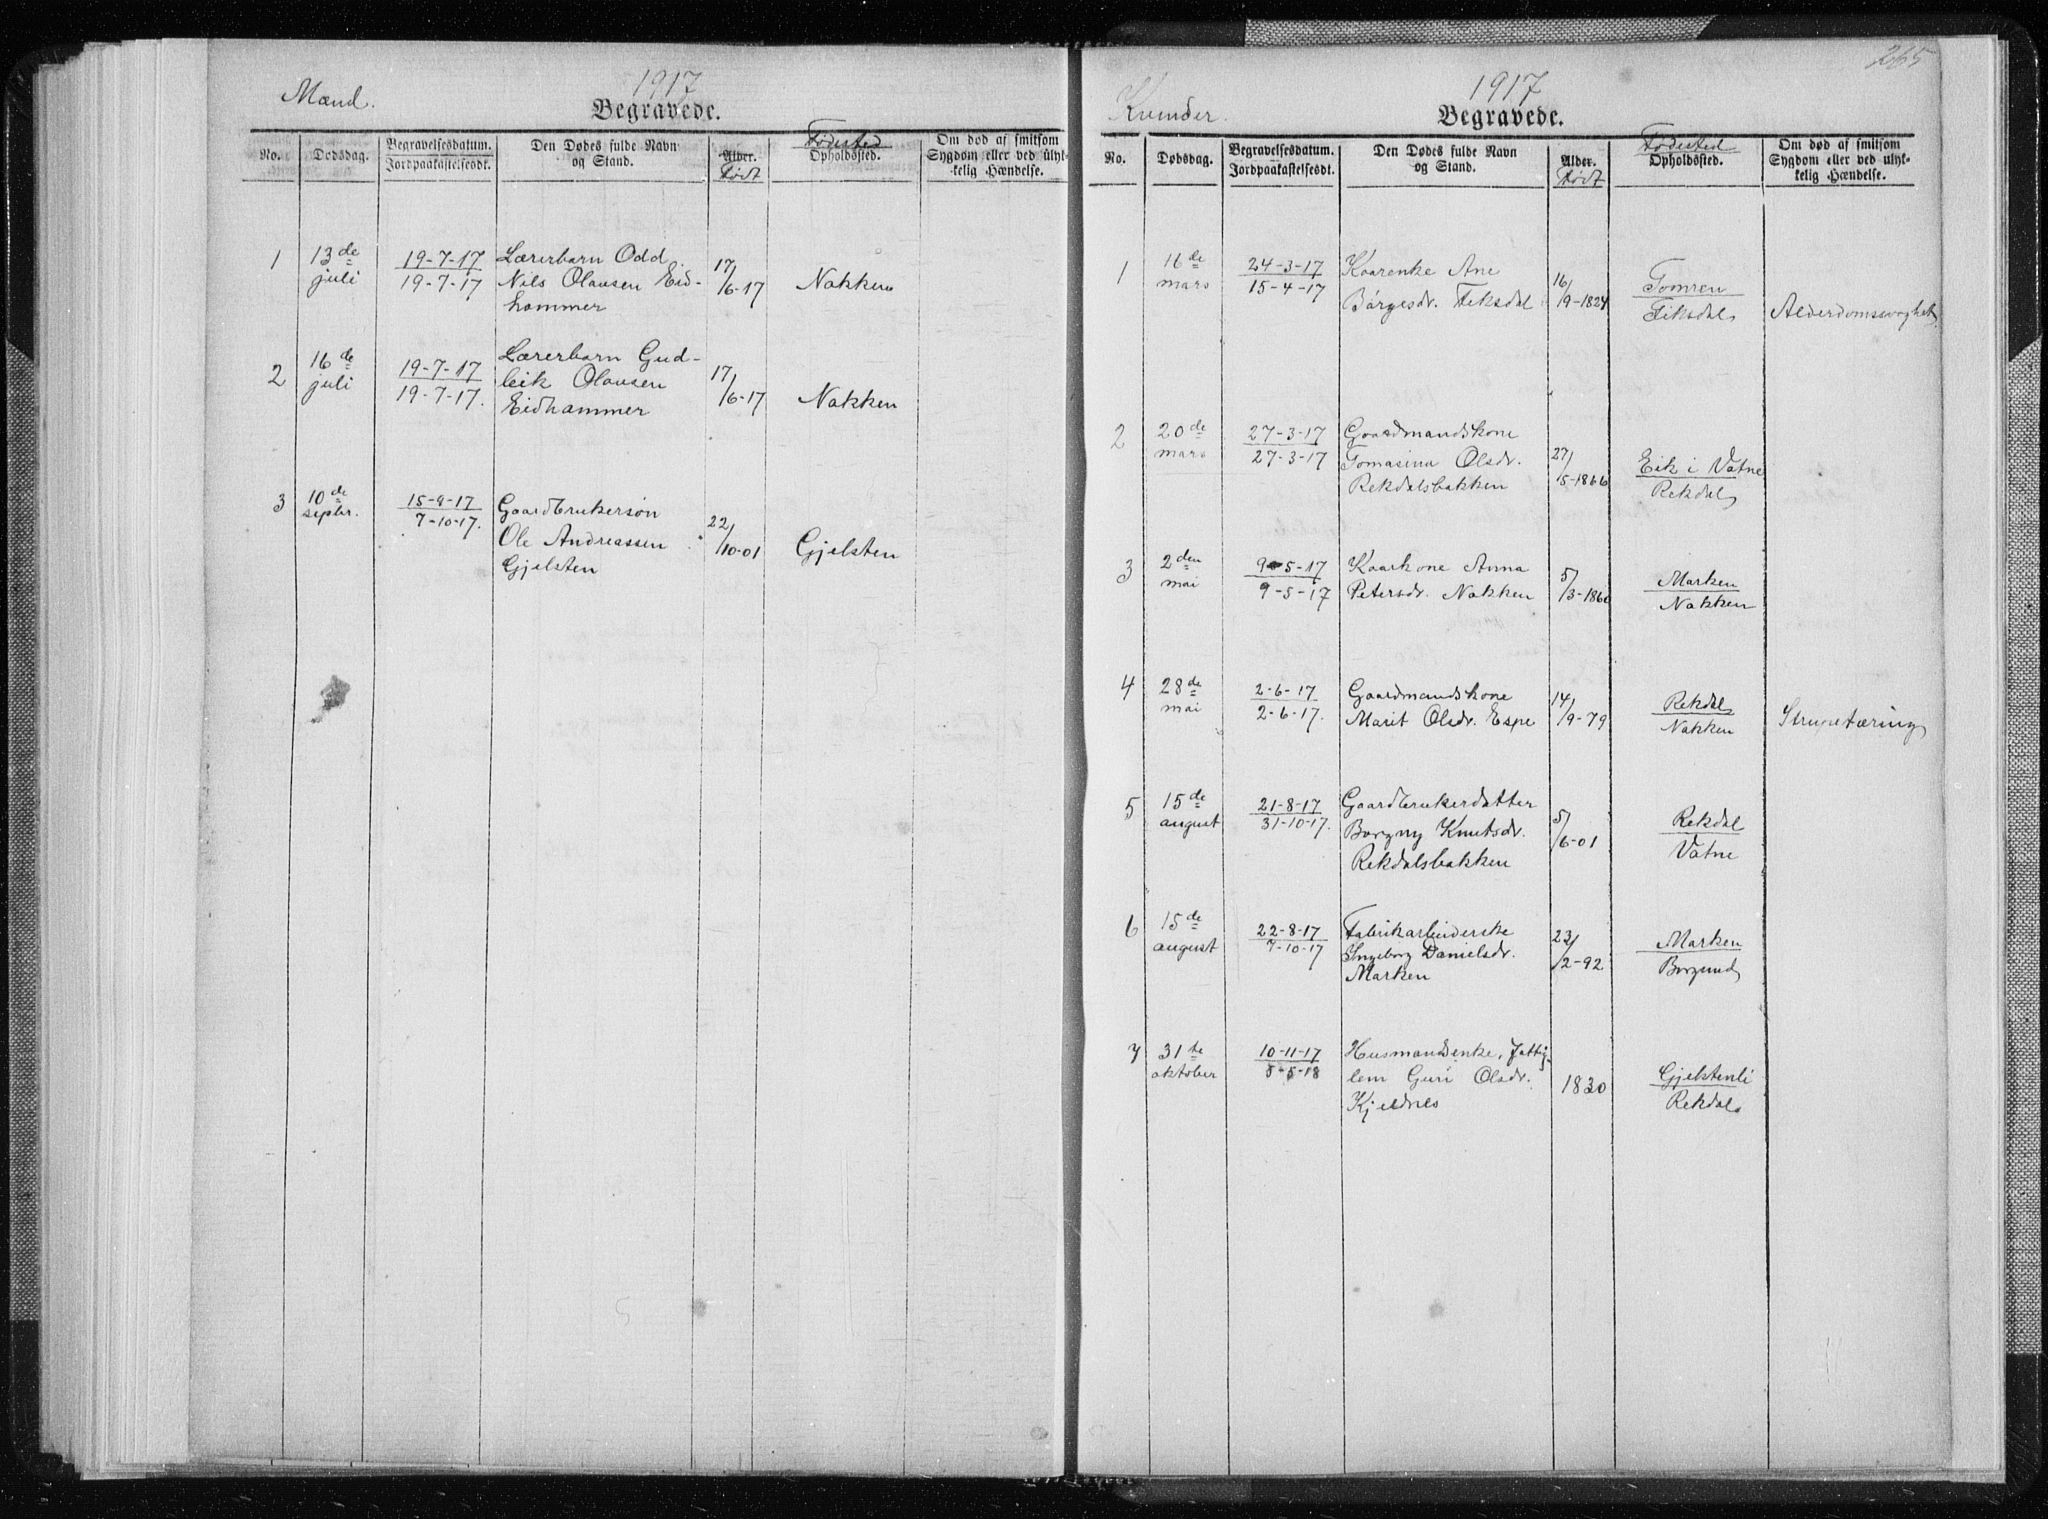 1917
Mænd.
Begravede.
No.
Dødsdag.
Begravelsesdatum.
Jordpaakastelsesdt.
Den Dødes fulde Navn
og Stand.
Alder.
Født
Fødested
Opholdssted.
Om død af smitsom
Sygdom eller ved ulyk-
kelig Hændelse.
1
13de
juli
19-7-17
19-7-17
Lærerbarn Odd
Nils Olausen Eid-
hammer
17/6-17
Nakken
2
16de
juli
19-7-17
19-7-17.
Lærerbarn Gud-
leik Olausen
Eidhammer
17/6-17
Nakken
3
10de
septbr.
15-9-17
7-10-17.
Gaardbrukersøn
Ole Andreassen
Gjelsten
22/10-01
Gjelsten
265
1917
Kvinder.
Begravede.
No.
Dødsdag.
Begravelsesdatum.
Jordpaakastelsesdt.
Den Dødes fulde Navn
og Stand.
Alder.
Født
Fødested
Opholdssted.
Om død af smitsom
Sygdom eller ved ulyk-
kelig Hændelse.
1
16de
mars
24-3-17
15-4-17
Kaarenke Ane
Børgesdr. Fiksdal
16/9-1824
Tomren
Fiksdal
Alderdomssvaghet
2
20de
mars
27-3-17
27-3-17
Gaardmandskone
Tomasina Olsdr.
Rekdalsbakken
27/5-1866
Eik i Vatne
Rekdal
3
2den
mai
9-5-17
9-5-17
Kaarkone Anna
Petersdr. Nakken
5/3-1860
Marken
Nakken
4
28de
mai
2-6-17
2-6-17.
Gaardmandskone
Marit Olsdr. Espe
14/9-79
Rekdal
Nakken
Strupetæring
5
15de
august
21-8-17
31-10-17.
Gaardbrukerdatter
Borgny Knutsdr.
Rekdalsbakken
5/6-01
Rekdal
Vatne
6
15de
august
22-8-17
7-10-17
Fabrikarbeiderske
Ingeborg Danielsdr.
Marken
23/2-92
Marken
Borgund
7
31te
oktober
10-11-17
5-5-18
Husmandsenke, Fattig-
lem Guri Olsdr.
Kjeldnes
1830
Gjelstenli
Rekdal